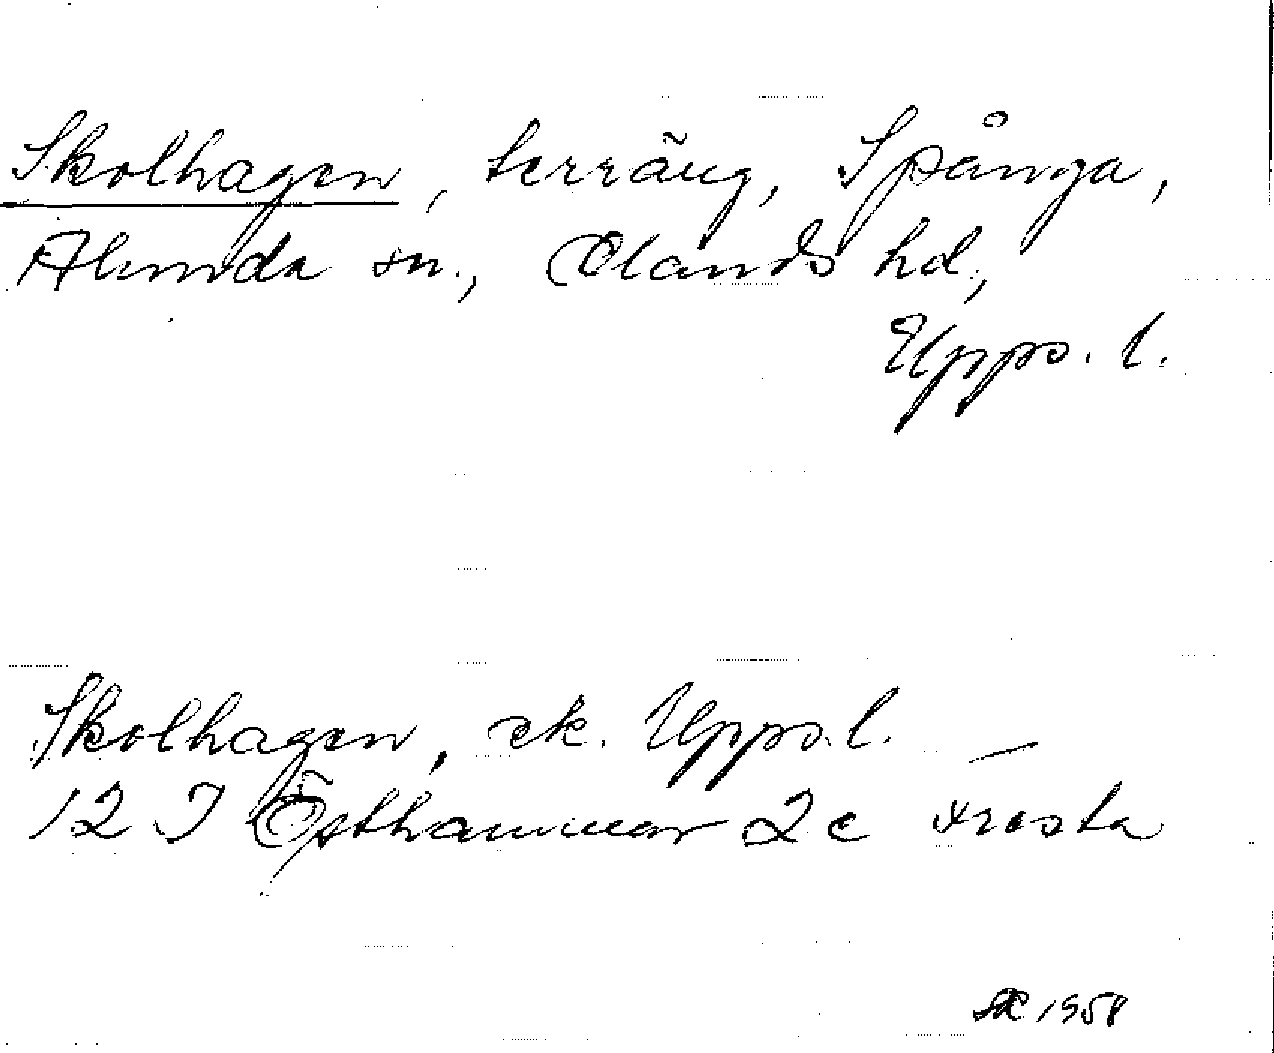 Skolhagen, terräng, Spånga,
Alunda sn., Olands hd,
Upps. l.
Skolhagen, ek. Upps. l. —
12 I Östhammar 2 c
1958